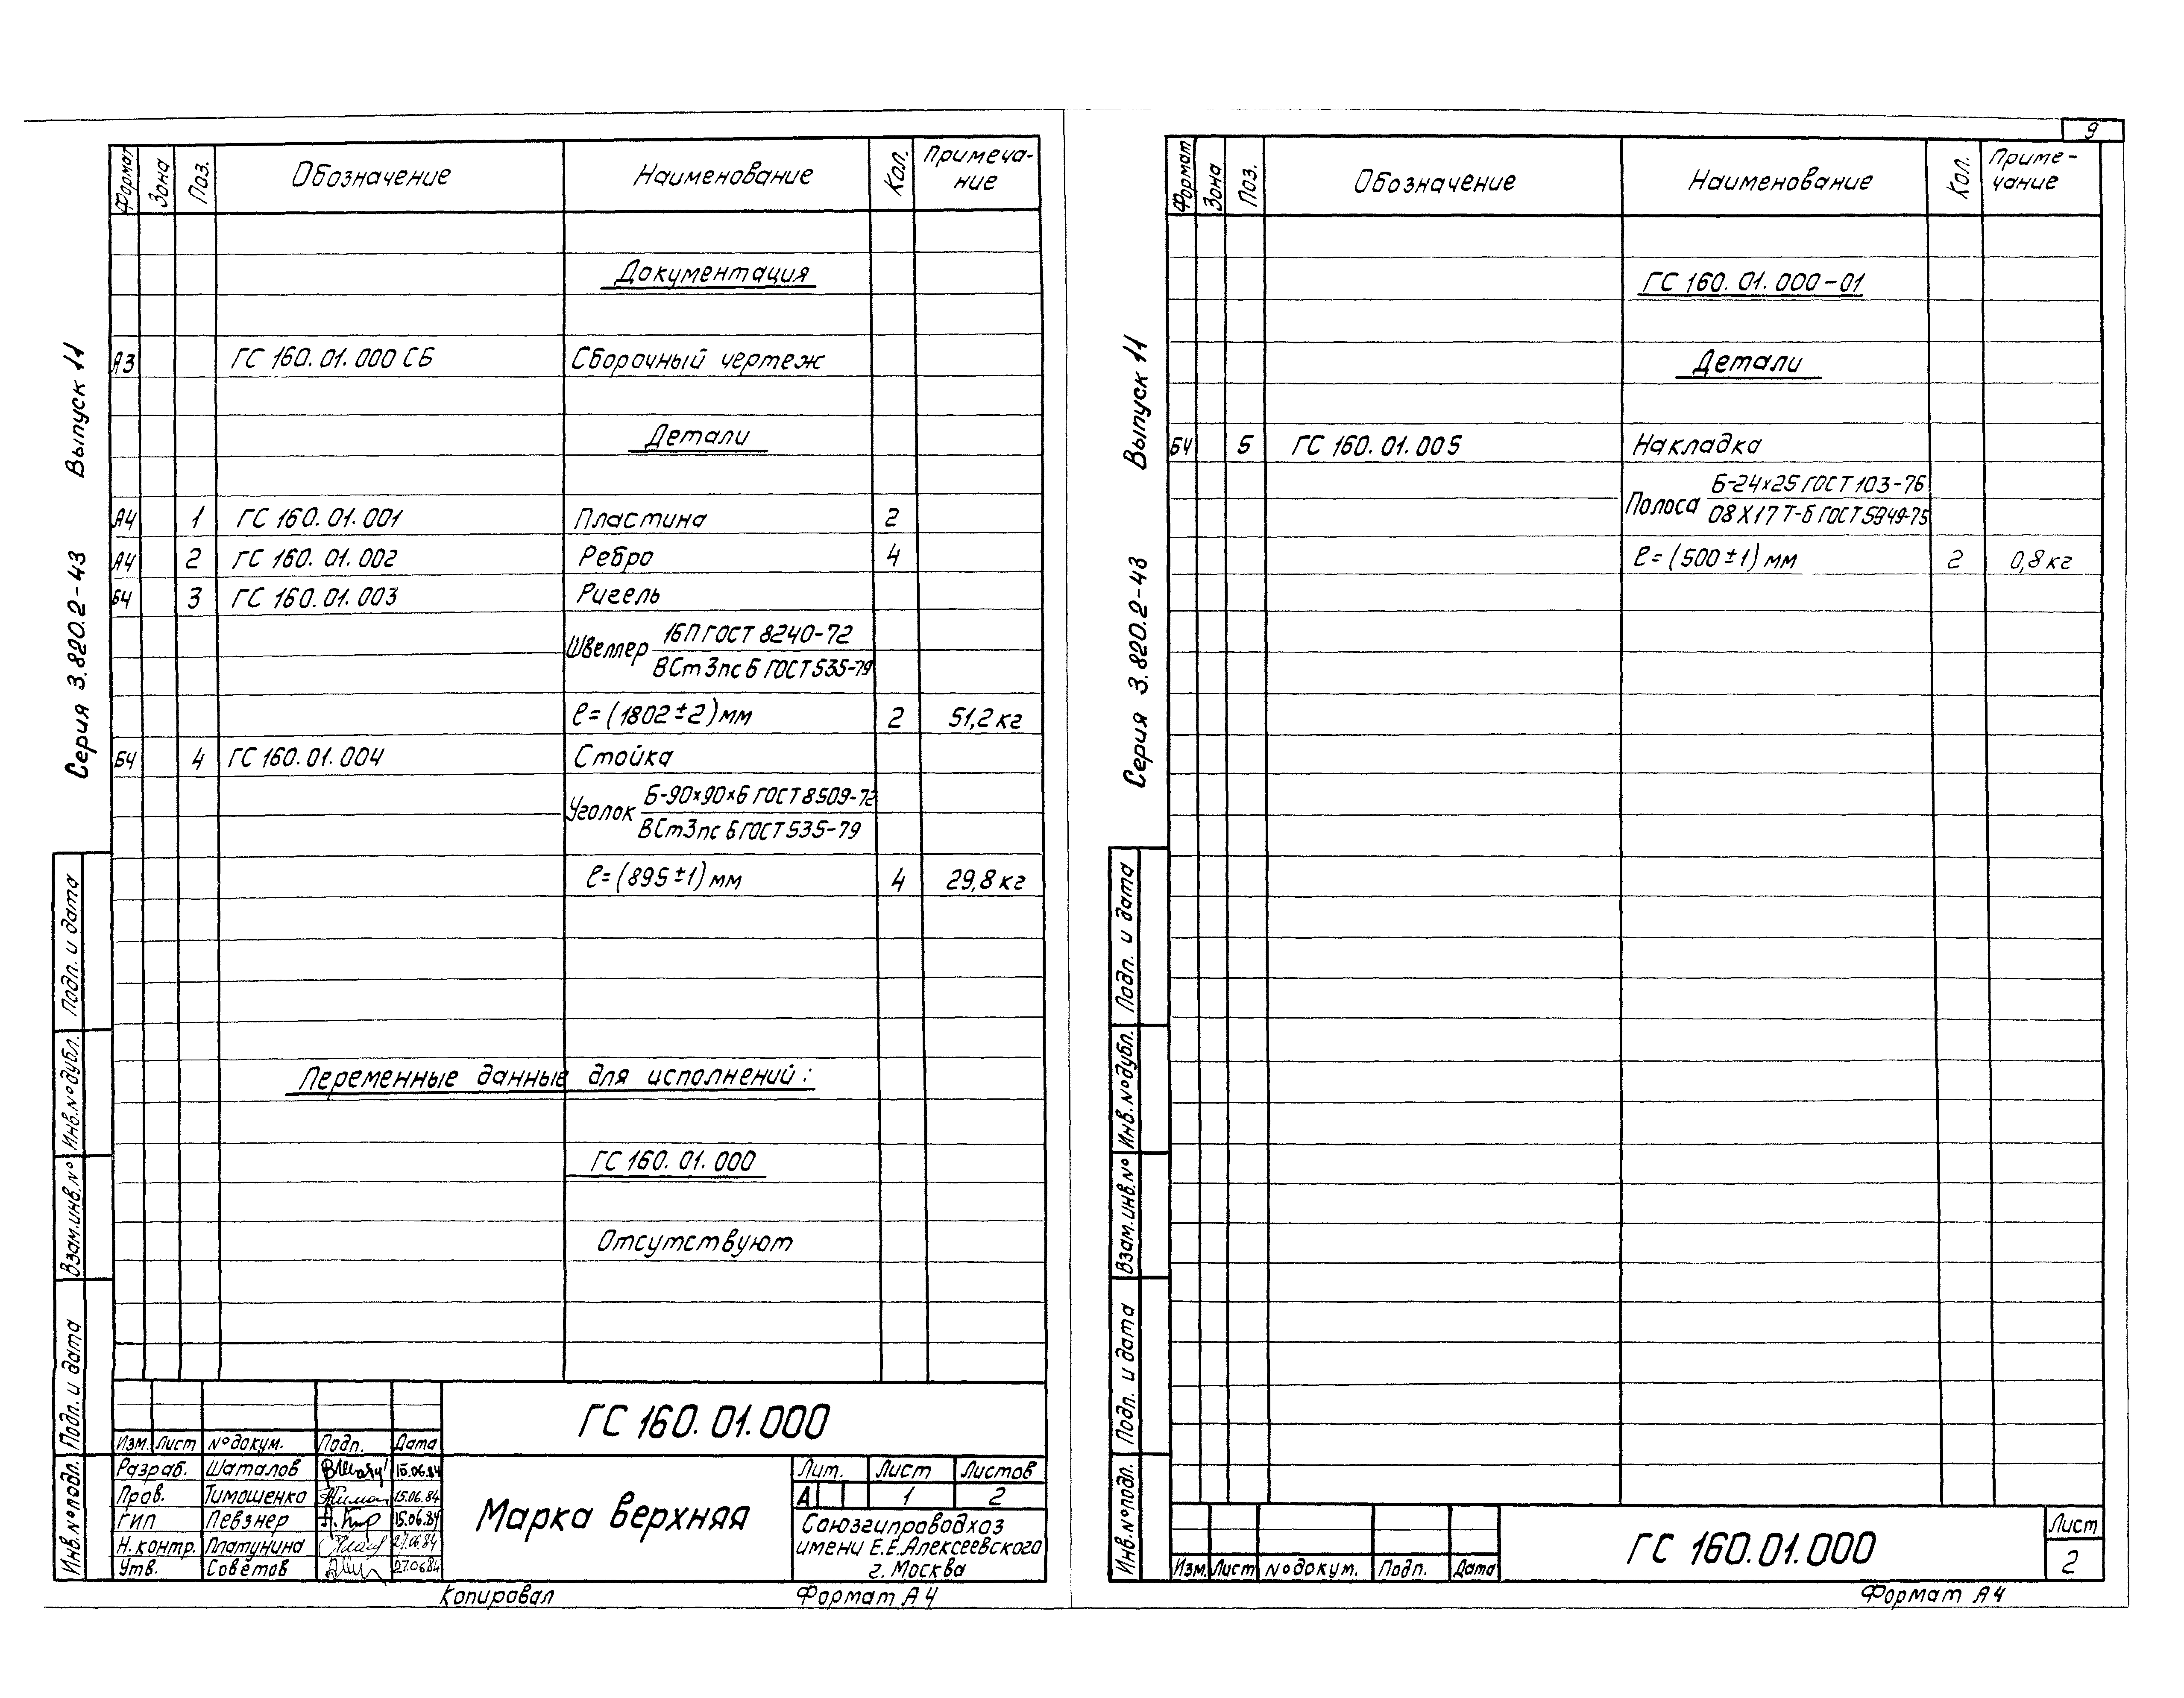 Формат Зона Поз. Обозначение Наименование Кол. Примеча-
ние
Документация
А3 ГС 160.01.000 СБ Сборочный чертеж
Детали
А4 1 ГС 160.01.001 Пластина 2
А4 2 ГС 160.01.002 Ребро 4
БЧ 3 ГС 160.01.003 Ригель
16П ГОСТ 8240-72
Швеллер
ВСт3пс6 ГОСТ 535-79
ℓ=(1802±2)мм 2 51,2кг
БЧ 4 ГС 160.01.004 Стойка
Б-90×90×6 ГОСТ 8509-72
Уголок
ВСт3пс6 ГОСТ 535-79
ℓ=(895±1)мм 4 29,8кг
Переменные данные для исполнений:
ГС 160.01.000
Отсутствуют
Серия 3.820.2-43 Выпуск 11
Подп. и дата
Инв.№дубл.
Взам.инв.№
Подп. и дата
Инв.№подл.
ГС 160.01.000
Изм. Лист №докум. Подп. Дата
Разраб. Шаталов 15.06.84
Пров. Тимошенко 15.06.84
ГИП Певзнер 15.06.84
Н.контр. Платунина 27.06.84
Утв. Советов 27.06.84
Марка верхняя
Лит. Лист Листов
А 1 2
Союзгипроводхоз
имени Е.Е.Алексеевского
г. Москва
Копировал Формат А4
9
Формат Зона Поз. Обозначение Наименование Кол. Приме-
чание
ГС 160.01.000-01
Детали
БЧ 5 ГС 160.01.005 Накладка
Б-24×25 ГОСТ 103-76
Полоса
08Х17Т-б ГОСТ 5949-75
ℓ=(500±1)мм 2 0,8кг
Серия 3.820.2-43 Выпуск 11
Подп. и дата
Инв.№дубл.
Взам.инв.№
Подп. и дата
Инв.№подл.
Изм. Лист №докум. Подп. Дата
ГС 160.01.000
Лист
2
Формат А4